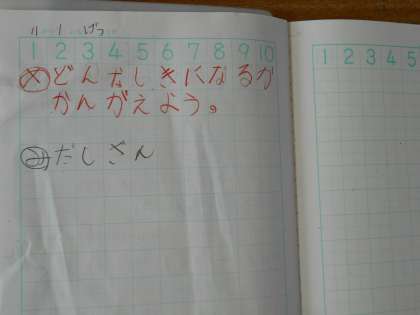 11 1 げつ
1 2 3 4 5 6 7 8 9 10
め どんなしきになるか
かんがえよう。
み たしざん
1 2 3 4 5